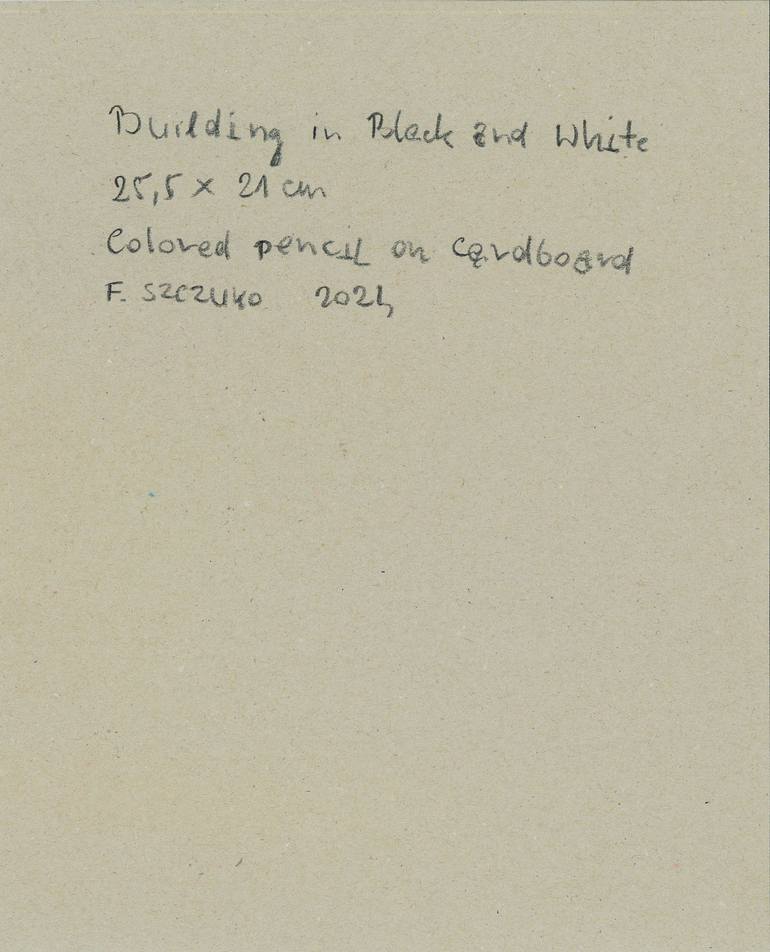 Building in Black and White
25,5 x 21 cm
Colored pencil on Cardboard
F. SZCZUKO 2024